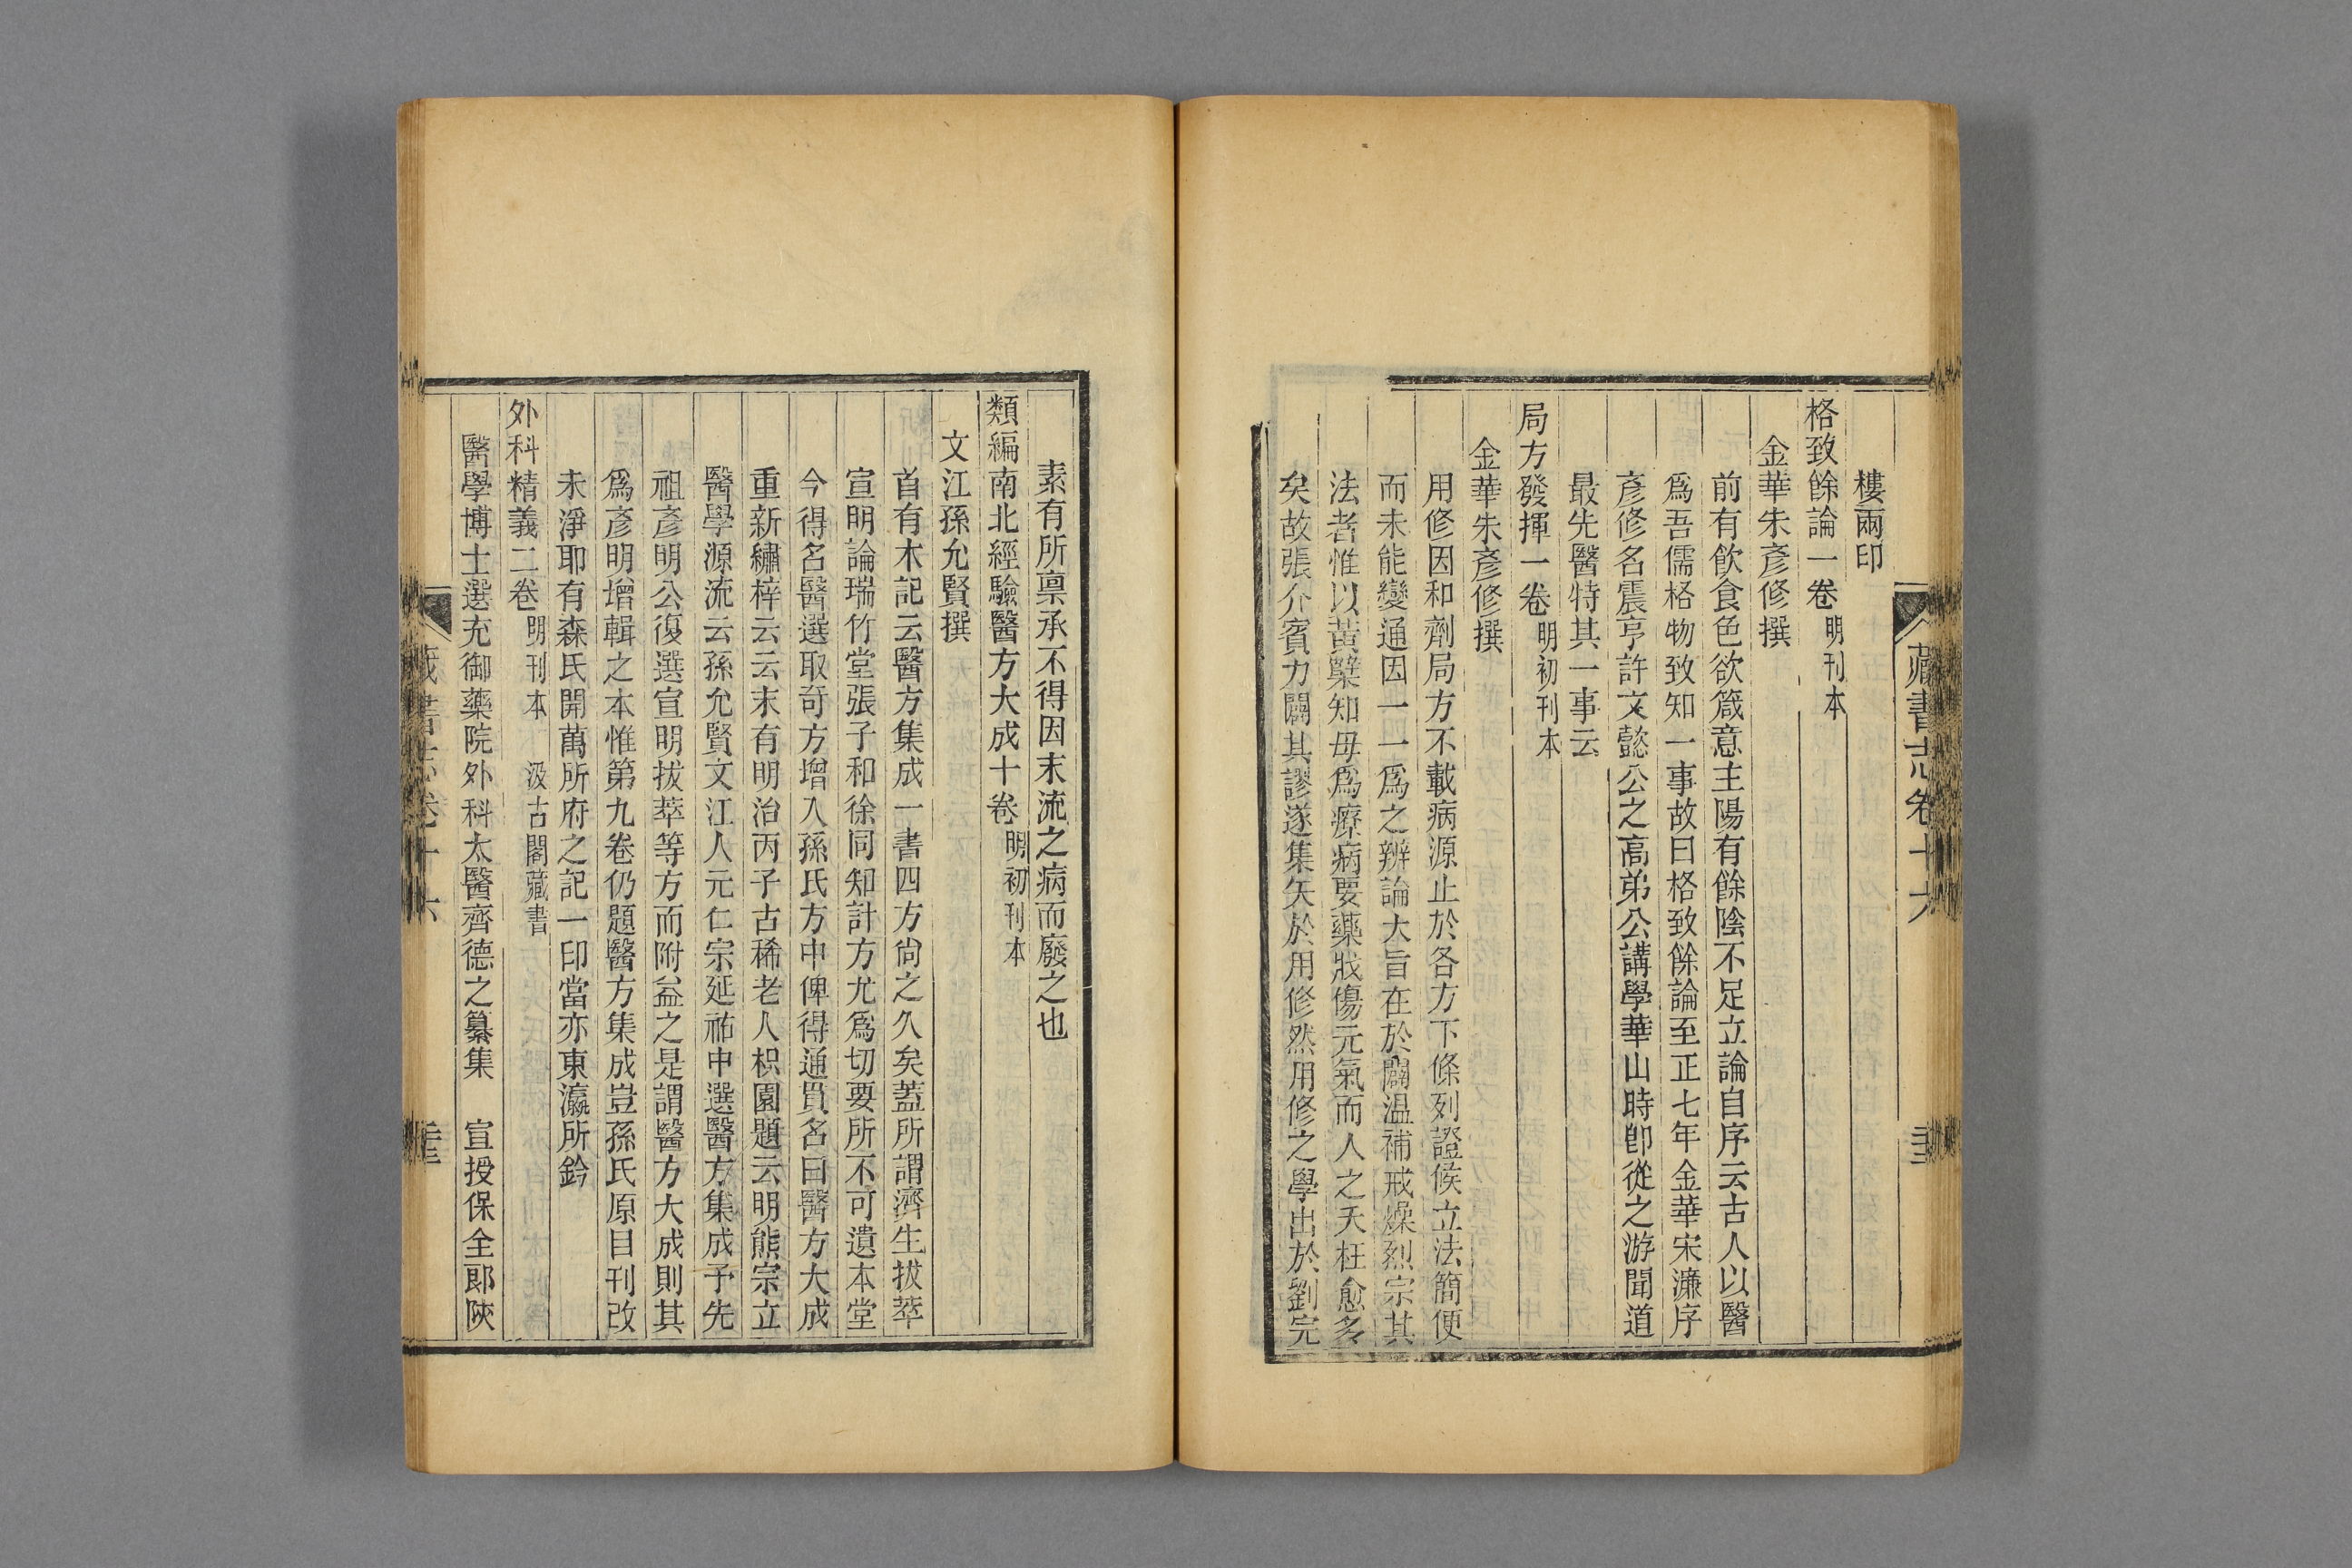 藏書志卷十六
樓兩印
格致餘論一卷 明刊本
金華朱彥修撰
前有飲食色欲箴意主陽有餘陰不足立論自序云古人以醫
爲吾儒格物致知一事故曰格致餘論至正七年金華宋濂序
彥修名震亨許文懿公之高弟公講學華山時卽從之游聞道
最先醫特其一事云
局方發揮一卷 明初刊本
金華朱彥修撰
用修因和劑局方不載病源止於各方下條列證候立法簡便
而未能變通因一一爲之辨論大旨在於闢温補戒燥烈宗其
法者惟以黃檗知母爲療病要藥戕傷元氣而人之夭枉愈多
矣故張介賓力闢其謬遂集矢於用修然用修之學出於劉完
素有所禀承不得因末流之病而廢之也
類編南北經驗醫方大成十卷 明初刊本
文江孫允賢撰
首有木記云醫方集成一書四方尙之久矣蓋所謂濟生拔萃
宣明論瑞竹堂張子和徐同知計方尤爲切要所不可遺本堂
今得名醫選取奇方增入孫氏方中俾得通貫名曰醫方大成
重新繡梓云云末有明治丙子古稀老人枳園題云明熊宗立
醫學源流云孫允賢文江人元仁宗延祐中選醫方集成予先
祖彥明公復選宣明拔萃等方而附益之是謂醫方大成則其
爲彥明增輯之本惟第九卷仍題醫方集成豈孫氏原目刊改
未淨耶有森氏開萬所府之記一印當亦東瀛所鈐
外科精義二卷 明刊本 汲古閣藏書
醫學博士選充御藥院外科太醫齊德之纂集 宣授保全郎陝
藏書志卷十六